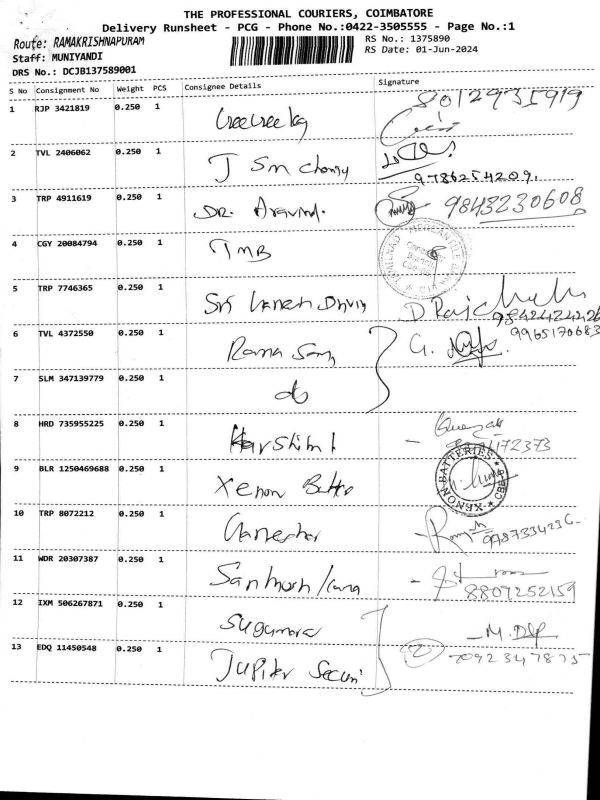 THE PROFESSIONAL COURIERS, COIMBATORE
Delivery Runsheet - PCG - Phone No.:0422-3505555 - Page No.:1
Route: RAMAKRISHNAPURAM
RS No.: 1375890
Staff: MUNIYANDI
RS Date: 01-Jun-2024
DRS No.: DCJB137589001
S No Consignment No Weight PCS Consignee Details Signature
8012935919
1 RJP 3421819 0.250 1
2 TVL 2406062 0.250 1 J Sm
9786254209.
3 TRP 4911619 0.250 1 DR. Aravind. 9843230608
4 CGY 20084794 0.250 1 TMB
TAMILNAD MERCANTILE
5 TRP 7746365 0.250 1 Sri D Raj
9842424426
6 TVL 4372550 0.250 1 Rama G.
9965170683
7 SLM 347139779 0.250 1 do
8 HRD 735955225 0.250 1
72373
9 BLR 1250469688 0.250 1 Xenon
XENON BATTERIES CBE
10 TRP 8072212 0.250 1
11 WDR 20307387 0.250 1 Santhosh
8807252159
12 IXM 506267871 0.250 1
M.
13 EDQ 11450548 0.250 1 Jupiter 2 7092347875